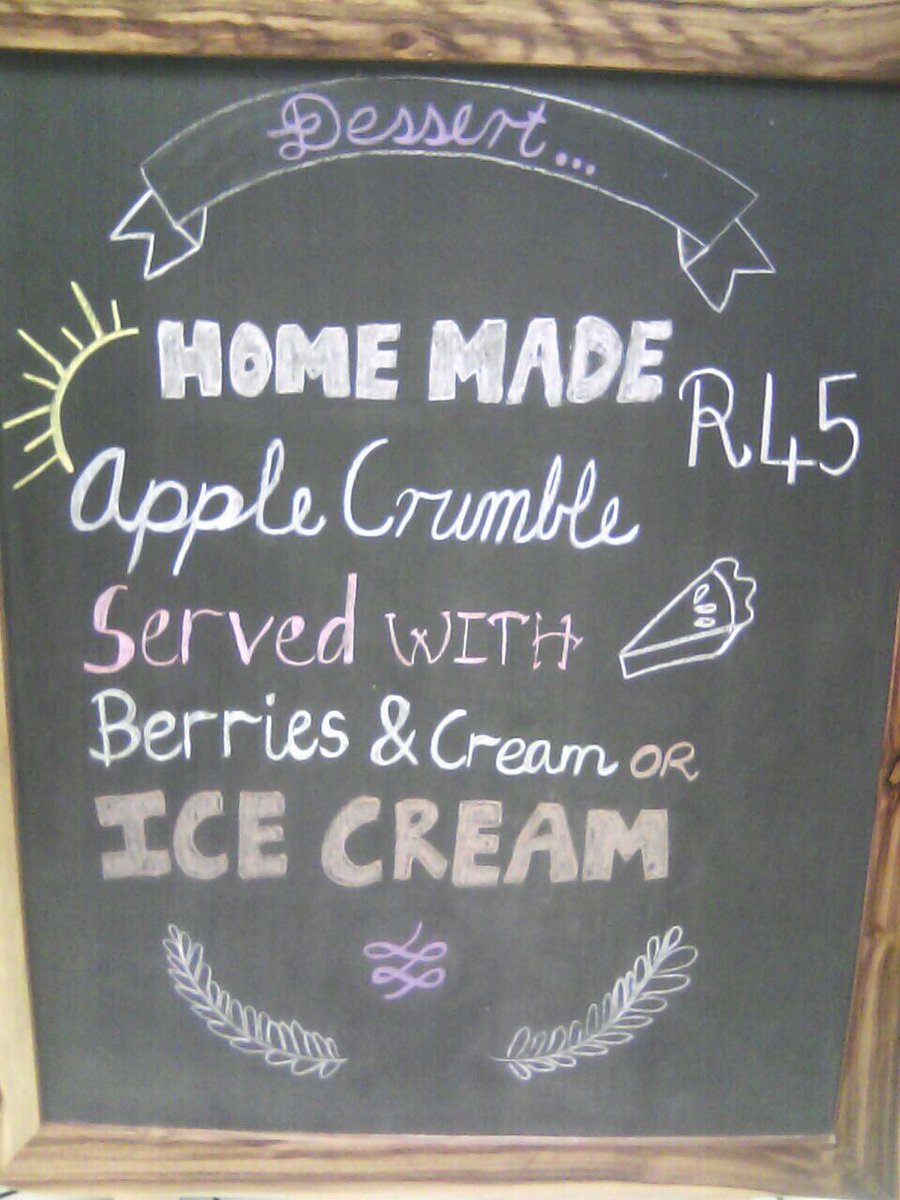 Dessert...
HOME MADE
R45
Apple Crumble
Served WITH
Berries & Cream OR
ICE CREAM